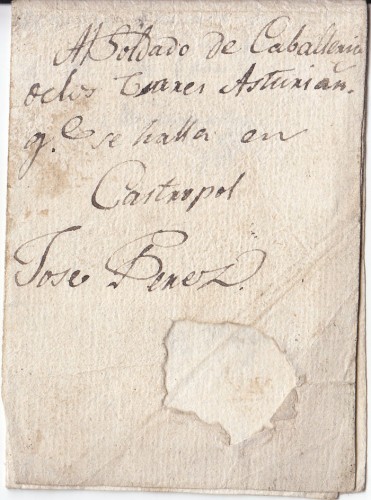 Al Soldado de Caballeria
de los Usares Asturian.
q.e se halla en
Castropol
Jose Perez.